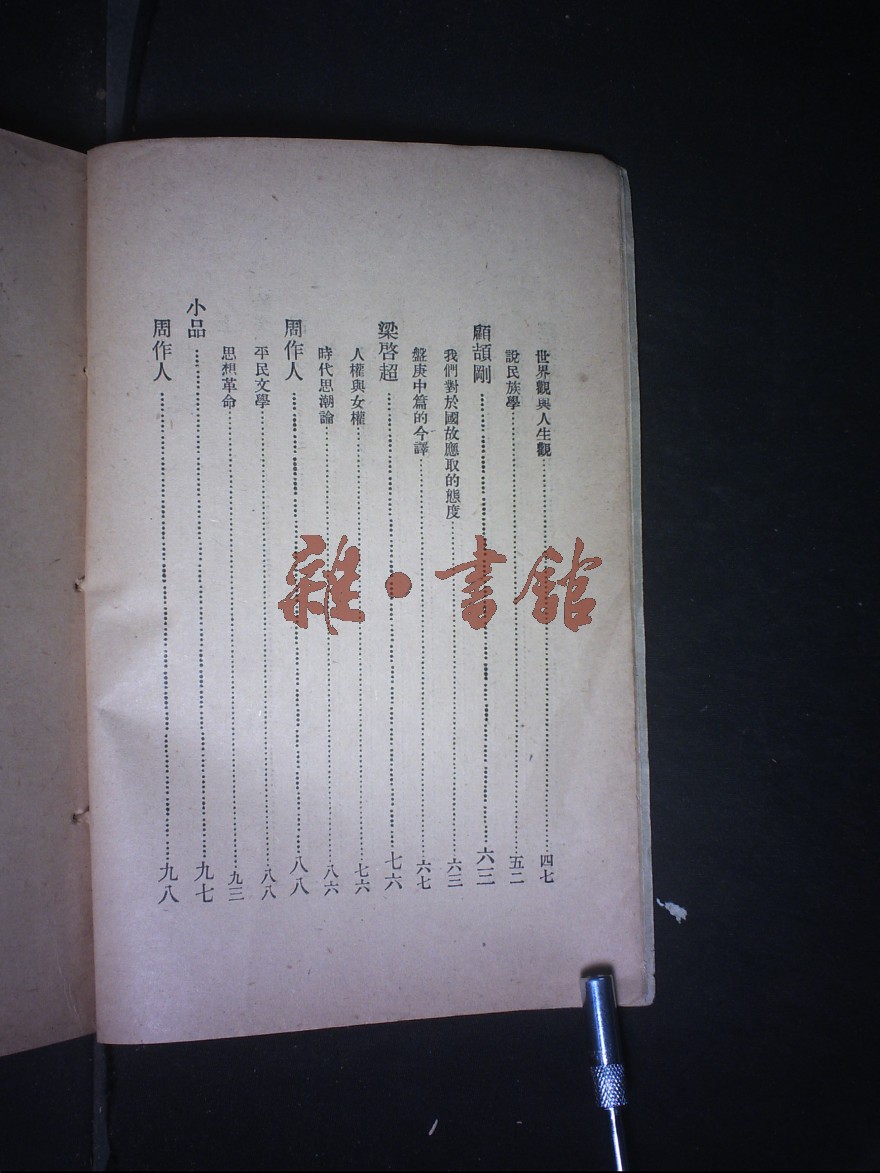 世界觀與人生觀……四七
說民族學……五二
顧頡剛……六三
我們對於國故應取的態度……六三
盤庚中篇的今譯……六七
梁啓超……七六
人權與女權……七六
時代思潮論……八六
周作人……八八
平民文學……八八
思想革命……九三
小品……九七
周作人……九八
雜·書館